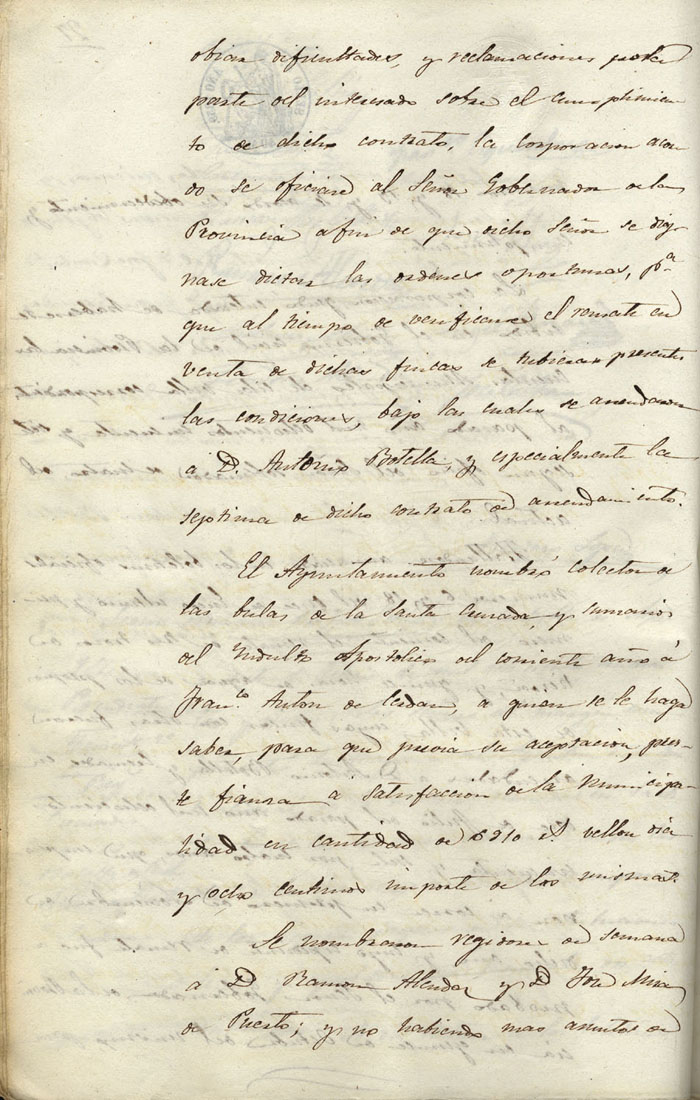 obiar dificultades, y reclamaciones por
parte del interesado sobre el cumplimien
to de dicho contrato, la corporacion acor
dó se oficiase al Señor Gobernador de la
Provincia afin de que dicho Señor se dig-
nase dictar las ordenes oportunas, pª
que al tiempo de verificarse el remate en
venta de dichas fincas se tubieran presentes
las condiciones, bajo las cuales se arrendaron
á D. Antonio Botella, y especialmente la
septima de dicho contrato de arrendamiento.
El Ayuntamiento nombró colector de
las bulas de la Santa Cruzada, y sumarios
del Yndulto Apostolico del corriente año á
Franco. Anton de Cerdan, a quien se le haga
saber, para que previa su aceptacion, pres-
te fianza á satisfaccion de la Municipa-
lidad en cantidad de 6210 rs. vellon diez
y ocho centimos importe de los mismos.
Se nombraron regidores de semana
á D. Ramon Alenda y D. José Mira
de Puesto; y no habiendo mas asuntos de